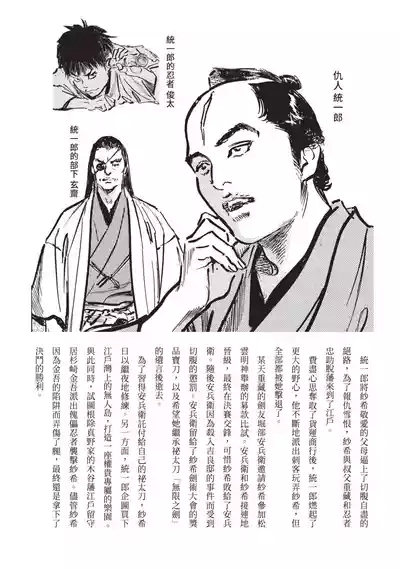 仇人 統一郎
統一郎的忍者 俊太
統一郎的部下 玄齋
統一郎將紗希敬愛的父母逼上了切腹自盡的
絕路，為了報仇雪恨，紗希與叔父重藏和忍者
忠助脫藩來到了江戶。
費盡心思奪取了貨運商行後，統一郎燃起了
更大的野心，他不斷地派出刺客玩弄紗希，但
全部都被她擊退了。
某天重藏的劍友堀部安兵衛邀請紗希參加松
雲明神舉辦的募款比試。安兵衛和紗希接連地
晉級，最終在決賽交鋒，可惜紗希敗給了安兵
衛。隨後安兵衛因為殺入吉良邸的事件而受到
切腹的懲罰。安兵衛留給了紗希劍術大會的獎
品寶刀，以及希望她繼承祕太刀「無限之劍」
的遺言後逝去。
為了習得安兵衛託付給自己的祕太刀，紗希
日以繼夜地修練。另一方面，統一郎企圖買下
江戶灣上的無人島，打造一座權貴專屬的樂園。
與此同時，試圖根除真野家的木谷藩江戶留守
居杉崎金吾派出傀儡忍者襲擊紗希。儘管紗希
因為金吾的陷阱而弄傷了腿，最終還是拿下了
決鬥的勝利。